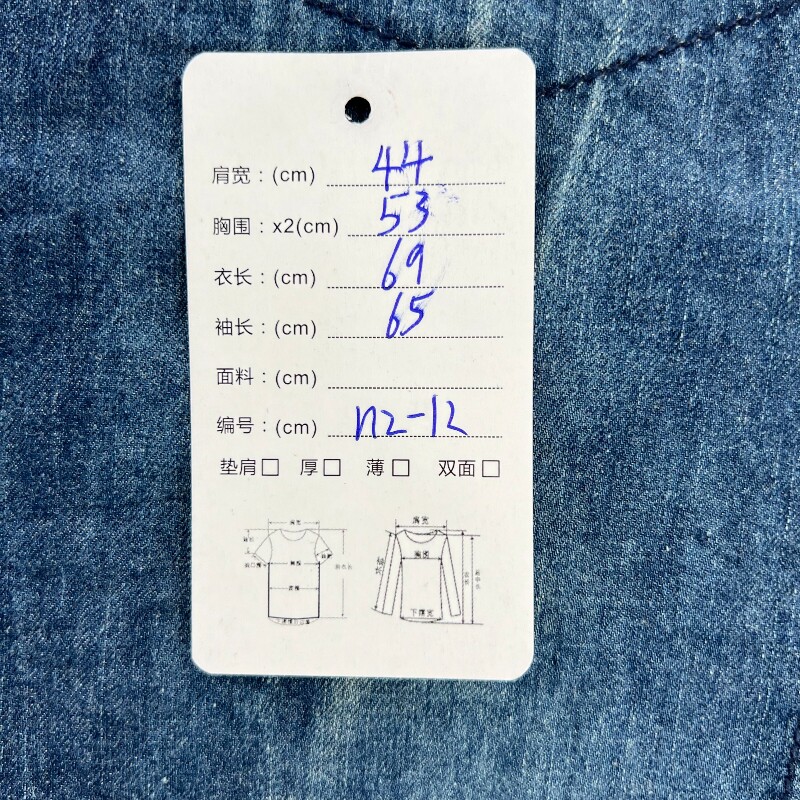 肩宽：(cm) 44
胸围：x2(cm) 53
衣长：(cm) 69
袖长：(cm) 65
面料：(cm)
编号：(cm) n2-12
垫肩□ 厚□ 薄□ 双面□
肩宽 肩宽
胸围
下摆宽